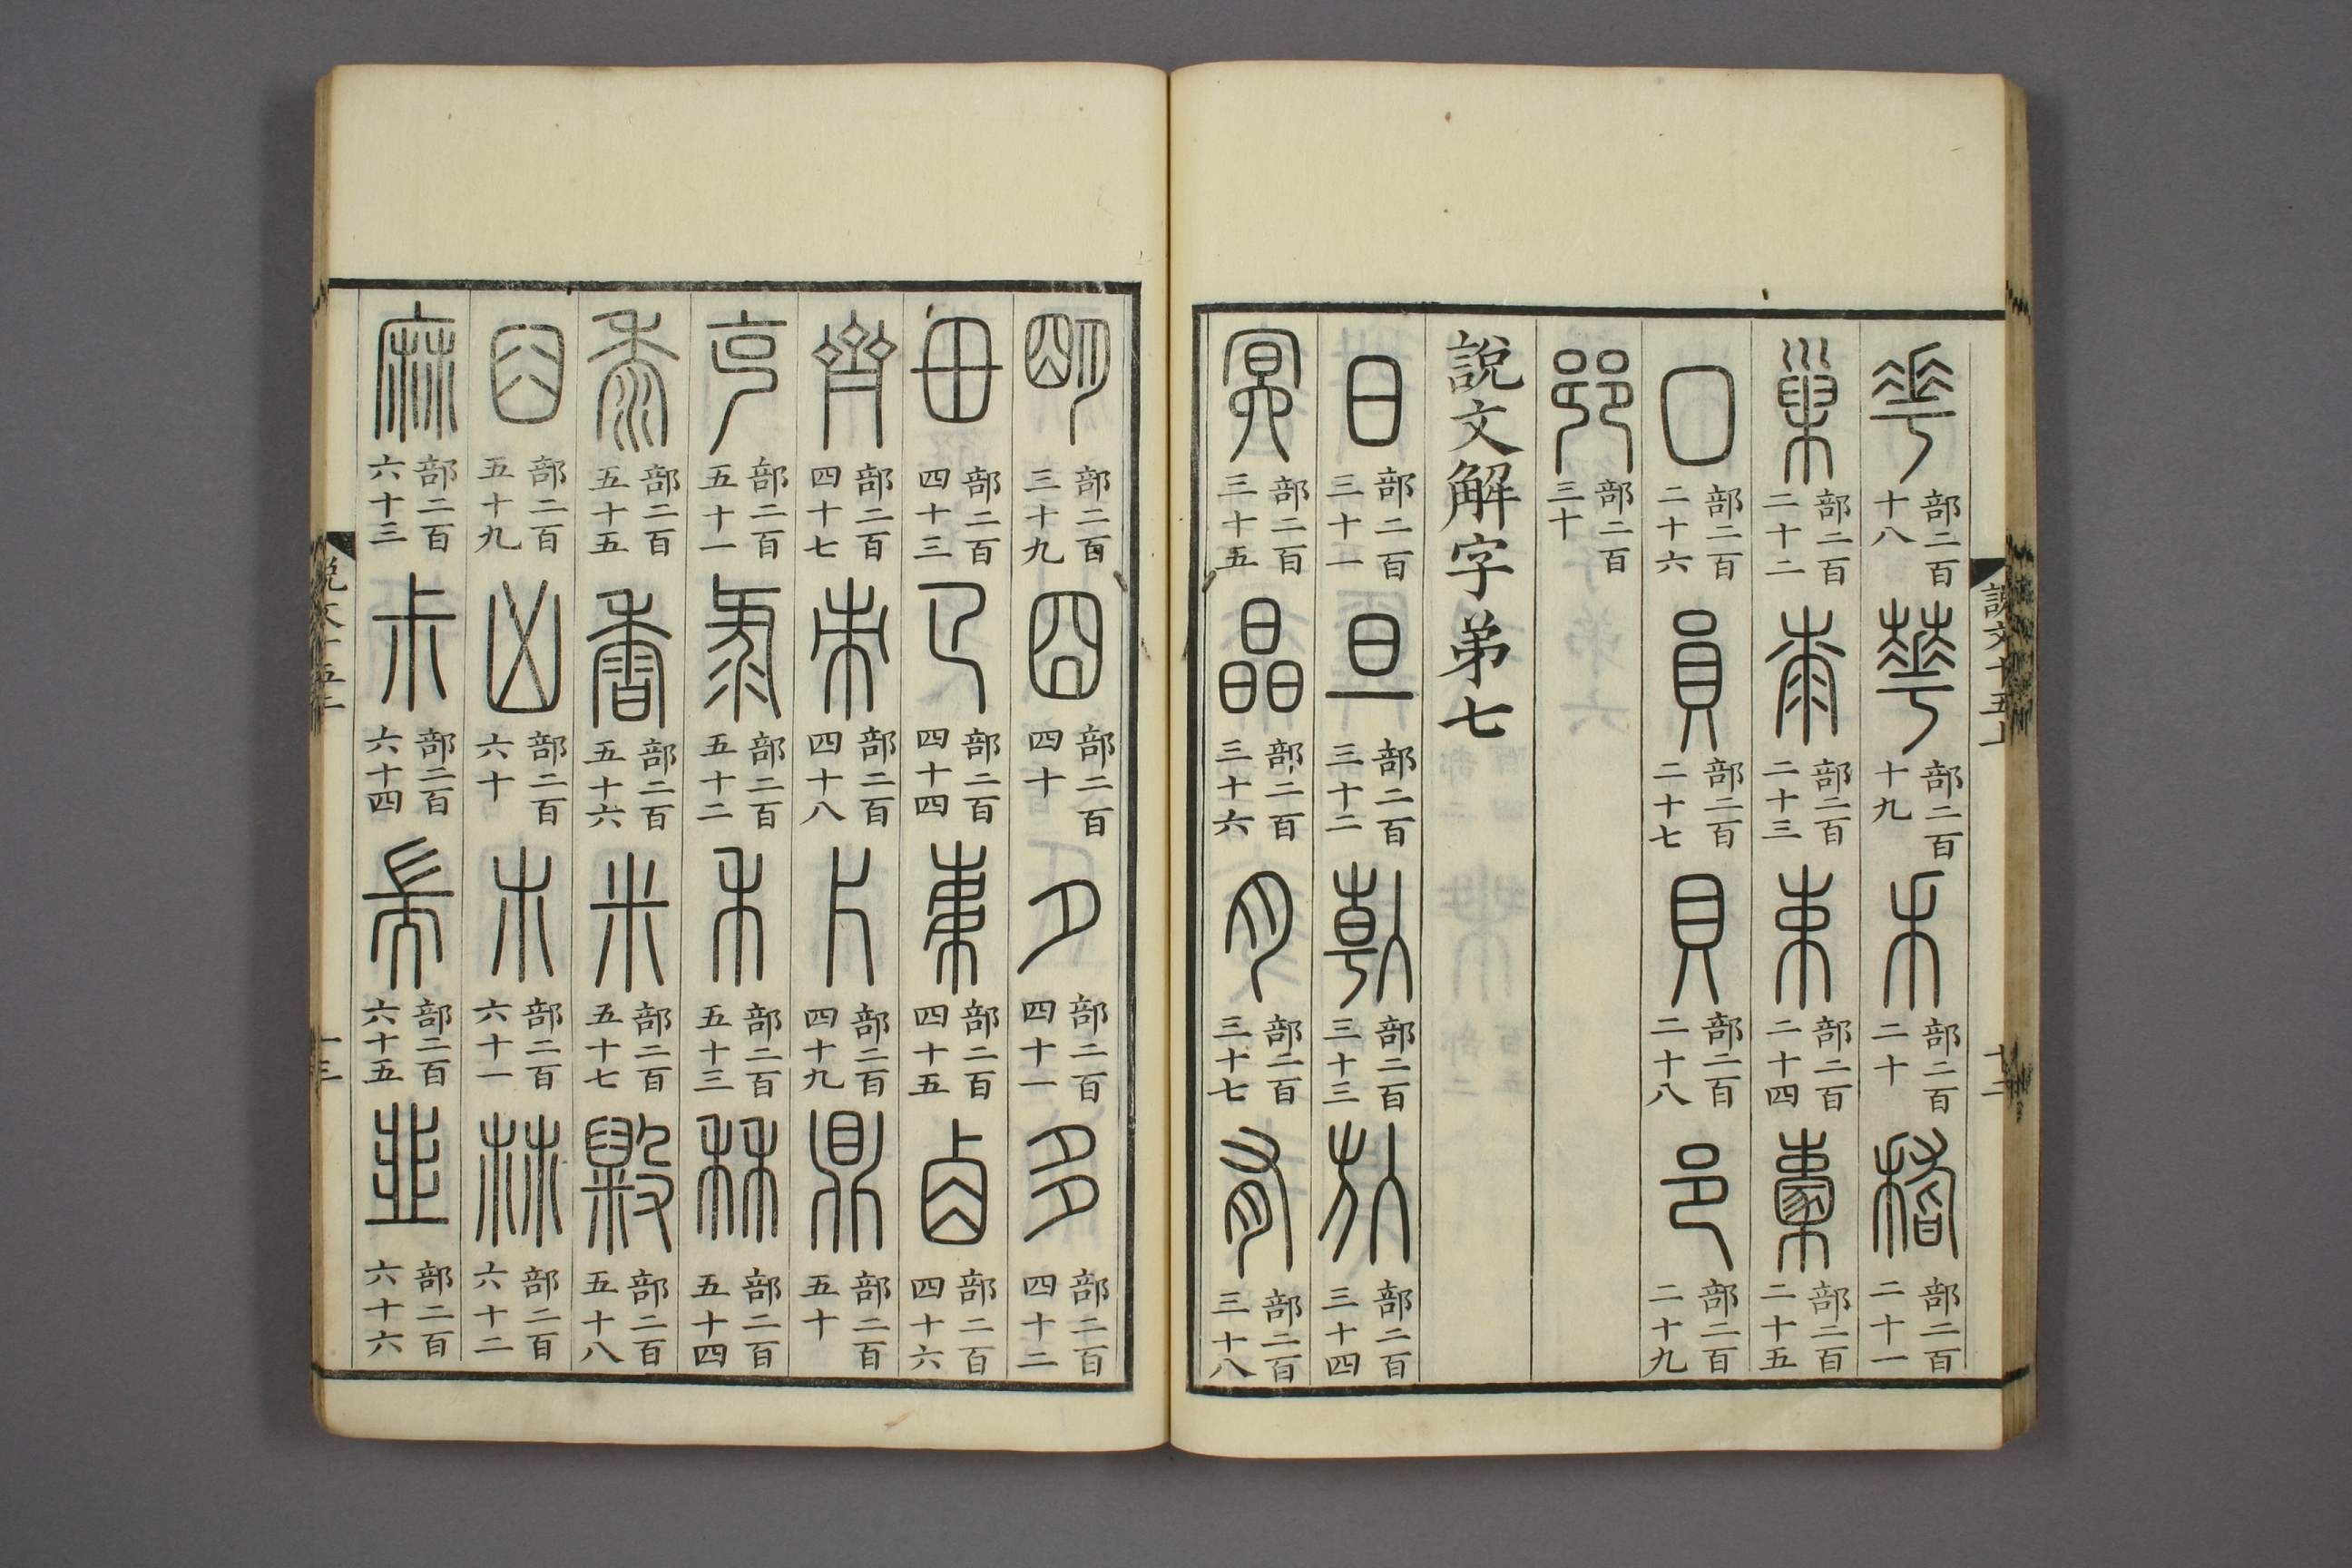 說文十五上 十二
𠌶部二百十八華部二百十九𥝌部二百二十稽部二百二十一
巢部二百二十二桼部二百二十三束部二百二十四㯻部二百二十五
囗部二百二十六員部二百二十七貝部二百二十八邑部二百二十九
𨛜部二百三十
說文解字弟七
日部二百三十一旦部二百三十二倝部二百三十三㫃部二百三十四
冥部二百三十五晶部二百三十六月部二百三十七有部二百三十八
朙部二百三十九囧部二百四十夕部二百四十一多部二百四十二
毌部二百四十三𢎘部二百四十四𣐺部二百四十五𠧪部二百四十六
齊部二百四十七朿部二百四十八片部二百四十九鼎部二百五十
克部二百五十一彔部二百五十二禾部二百五十三秝部二百五十四
黍部二百五十五香部二百五十六米部二百五十七毇部二百五十八
臼部二百五十九凶部二百六十𣎳部二百六十一𣏟部二百六十二
麻部二百六十三尗部二百六十四耑部二百六十五韭部二百六十六
說文十五上 十三